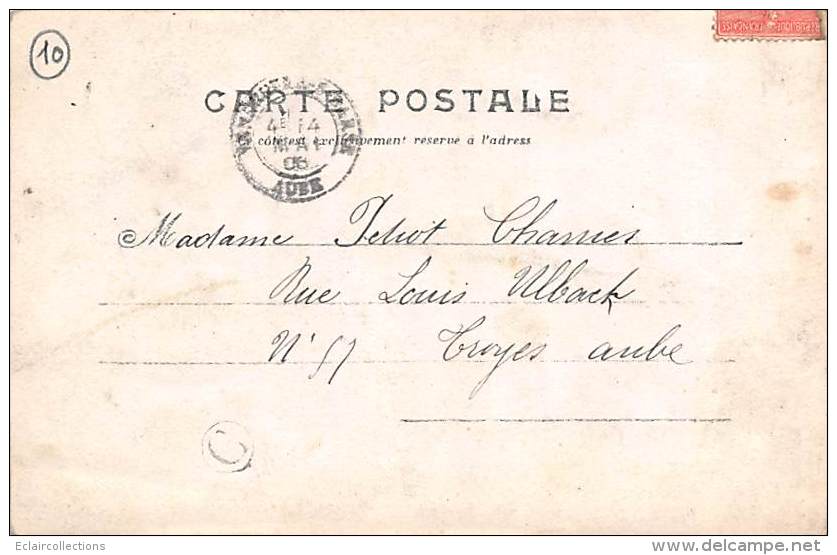 10
REPUBLIQUE FRANÇAISE
CARTE POSTALE
Ce côté est exclusivement reservé a l'adress
4E 14
MAI
06
AUBE
Madame
Rue Louis Ulback
N° 57 Troyes aube
C
Eclaircollections
www.delcampe.net